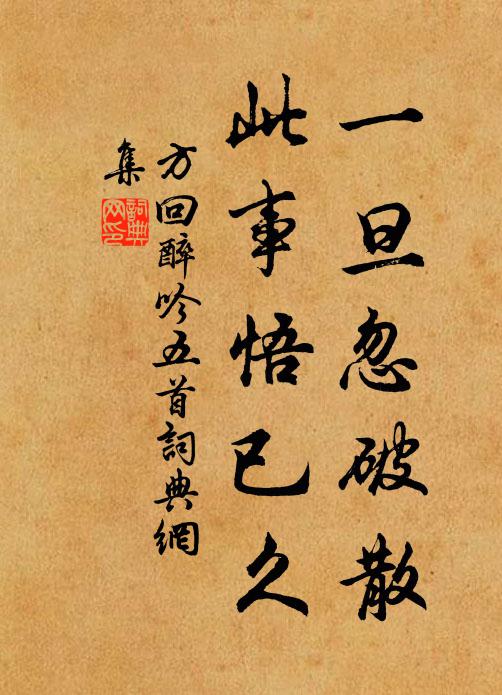 一旦忽破散
此事悟已久
方回醉吟五首詞典網
集
詞典
网印